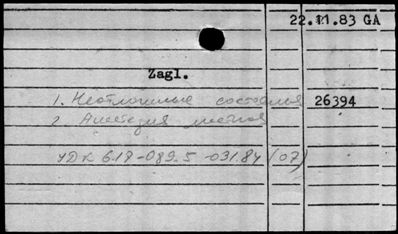 22.11.83 GA
Zagl.
1. Неотложные состояния 26394
2. Анестезия местная
УДК 618-089.5-031.84 (07)